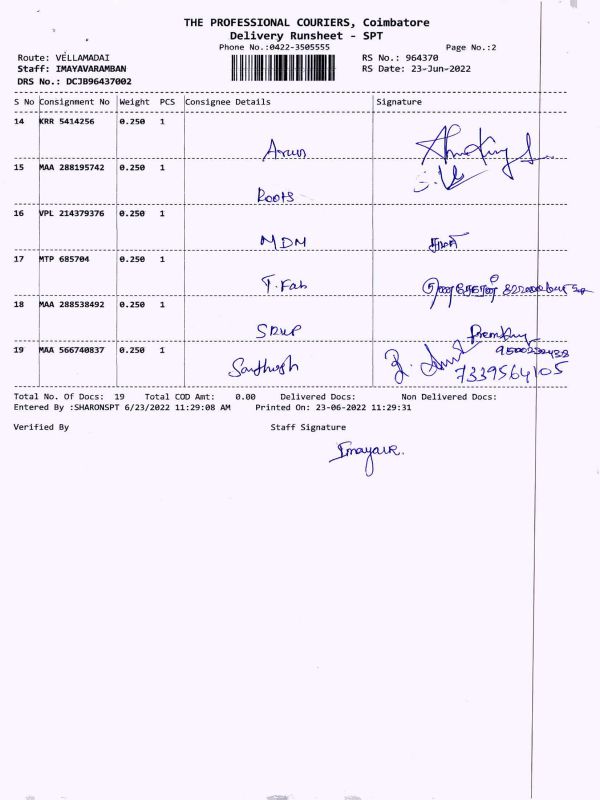 THE PROFESSIONAL COURIERS, Coimbatore
Delivery Runsheet - SPT
Phone No.:0422-3505555 Page No.:2
Route: VELLAMADAI RS No.: 964370
Staff: IMAYAVARAMBAN RS Date: 23-Jun-2022
DRS No.: DCJB96437002
S No Consignment No Weight PCS Consignee Details Signature
14 KRR 5414256 0.250 1
Arun
15 MAA 288195742 0.250 1
Roots
16 VPL 214379376 0.250 1
MDM
17 MTP 685704 0.250 1
T. Fab
18 MAA 288538492 0.250 1
Premkumar
19 MAA 566740837 0.250 1
Santhosh 7339564105
Total No. Of Docs: 19 Total COD Amt: 0.00 Delivered Docs: Non Delivered Docs:
Entered By :SHARONSPT 6/23/2022 11:29:08 AM Printed On: 23-06-2022 11:29:31
Verified By Staff Signature